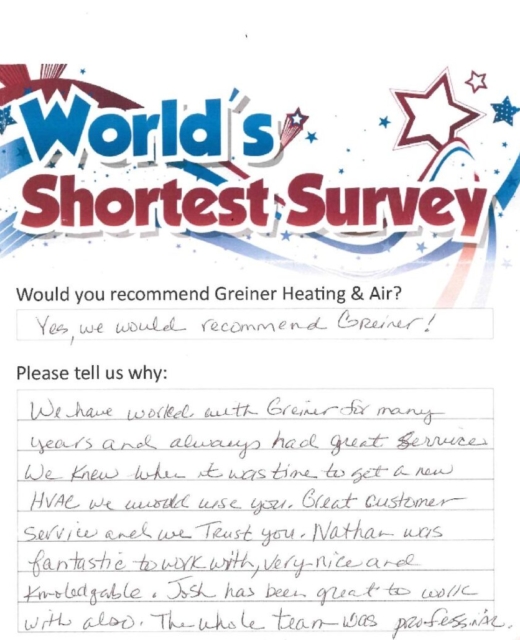 World's
Shortest Survey
Would you recommend Greiner Heating & Air?
Yes, we would recommend Greiner!
Please tell us why:
We have worked with Greiner for many
years and always had great Service
We knew when it was time to get a new
HVAC we would use you. Great customer
service and we Trust you. Nathan was
fantastic to work with, very nice and
knowledgable. Josh has been great to work
with also. The whole team was professional.